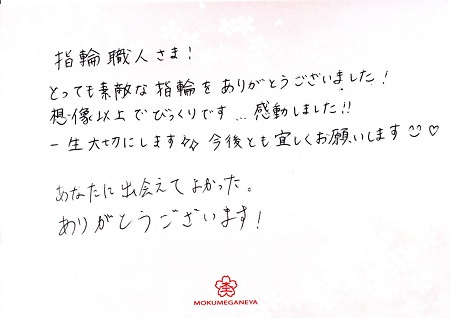 指輪職人さま!
とっても素敵な指輪をありがとうございました!
想像以上でびっくりです…感動しました!!
一生大切にします♪♪ 今後とも宜しくお願いします☺♡
あなたに出会えてよかった。
ありがとうございます!
MOKUMEGANEYA